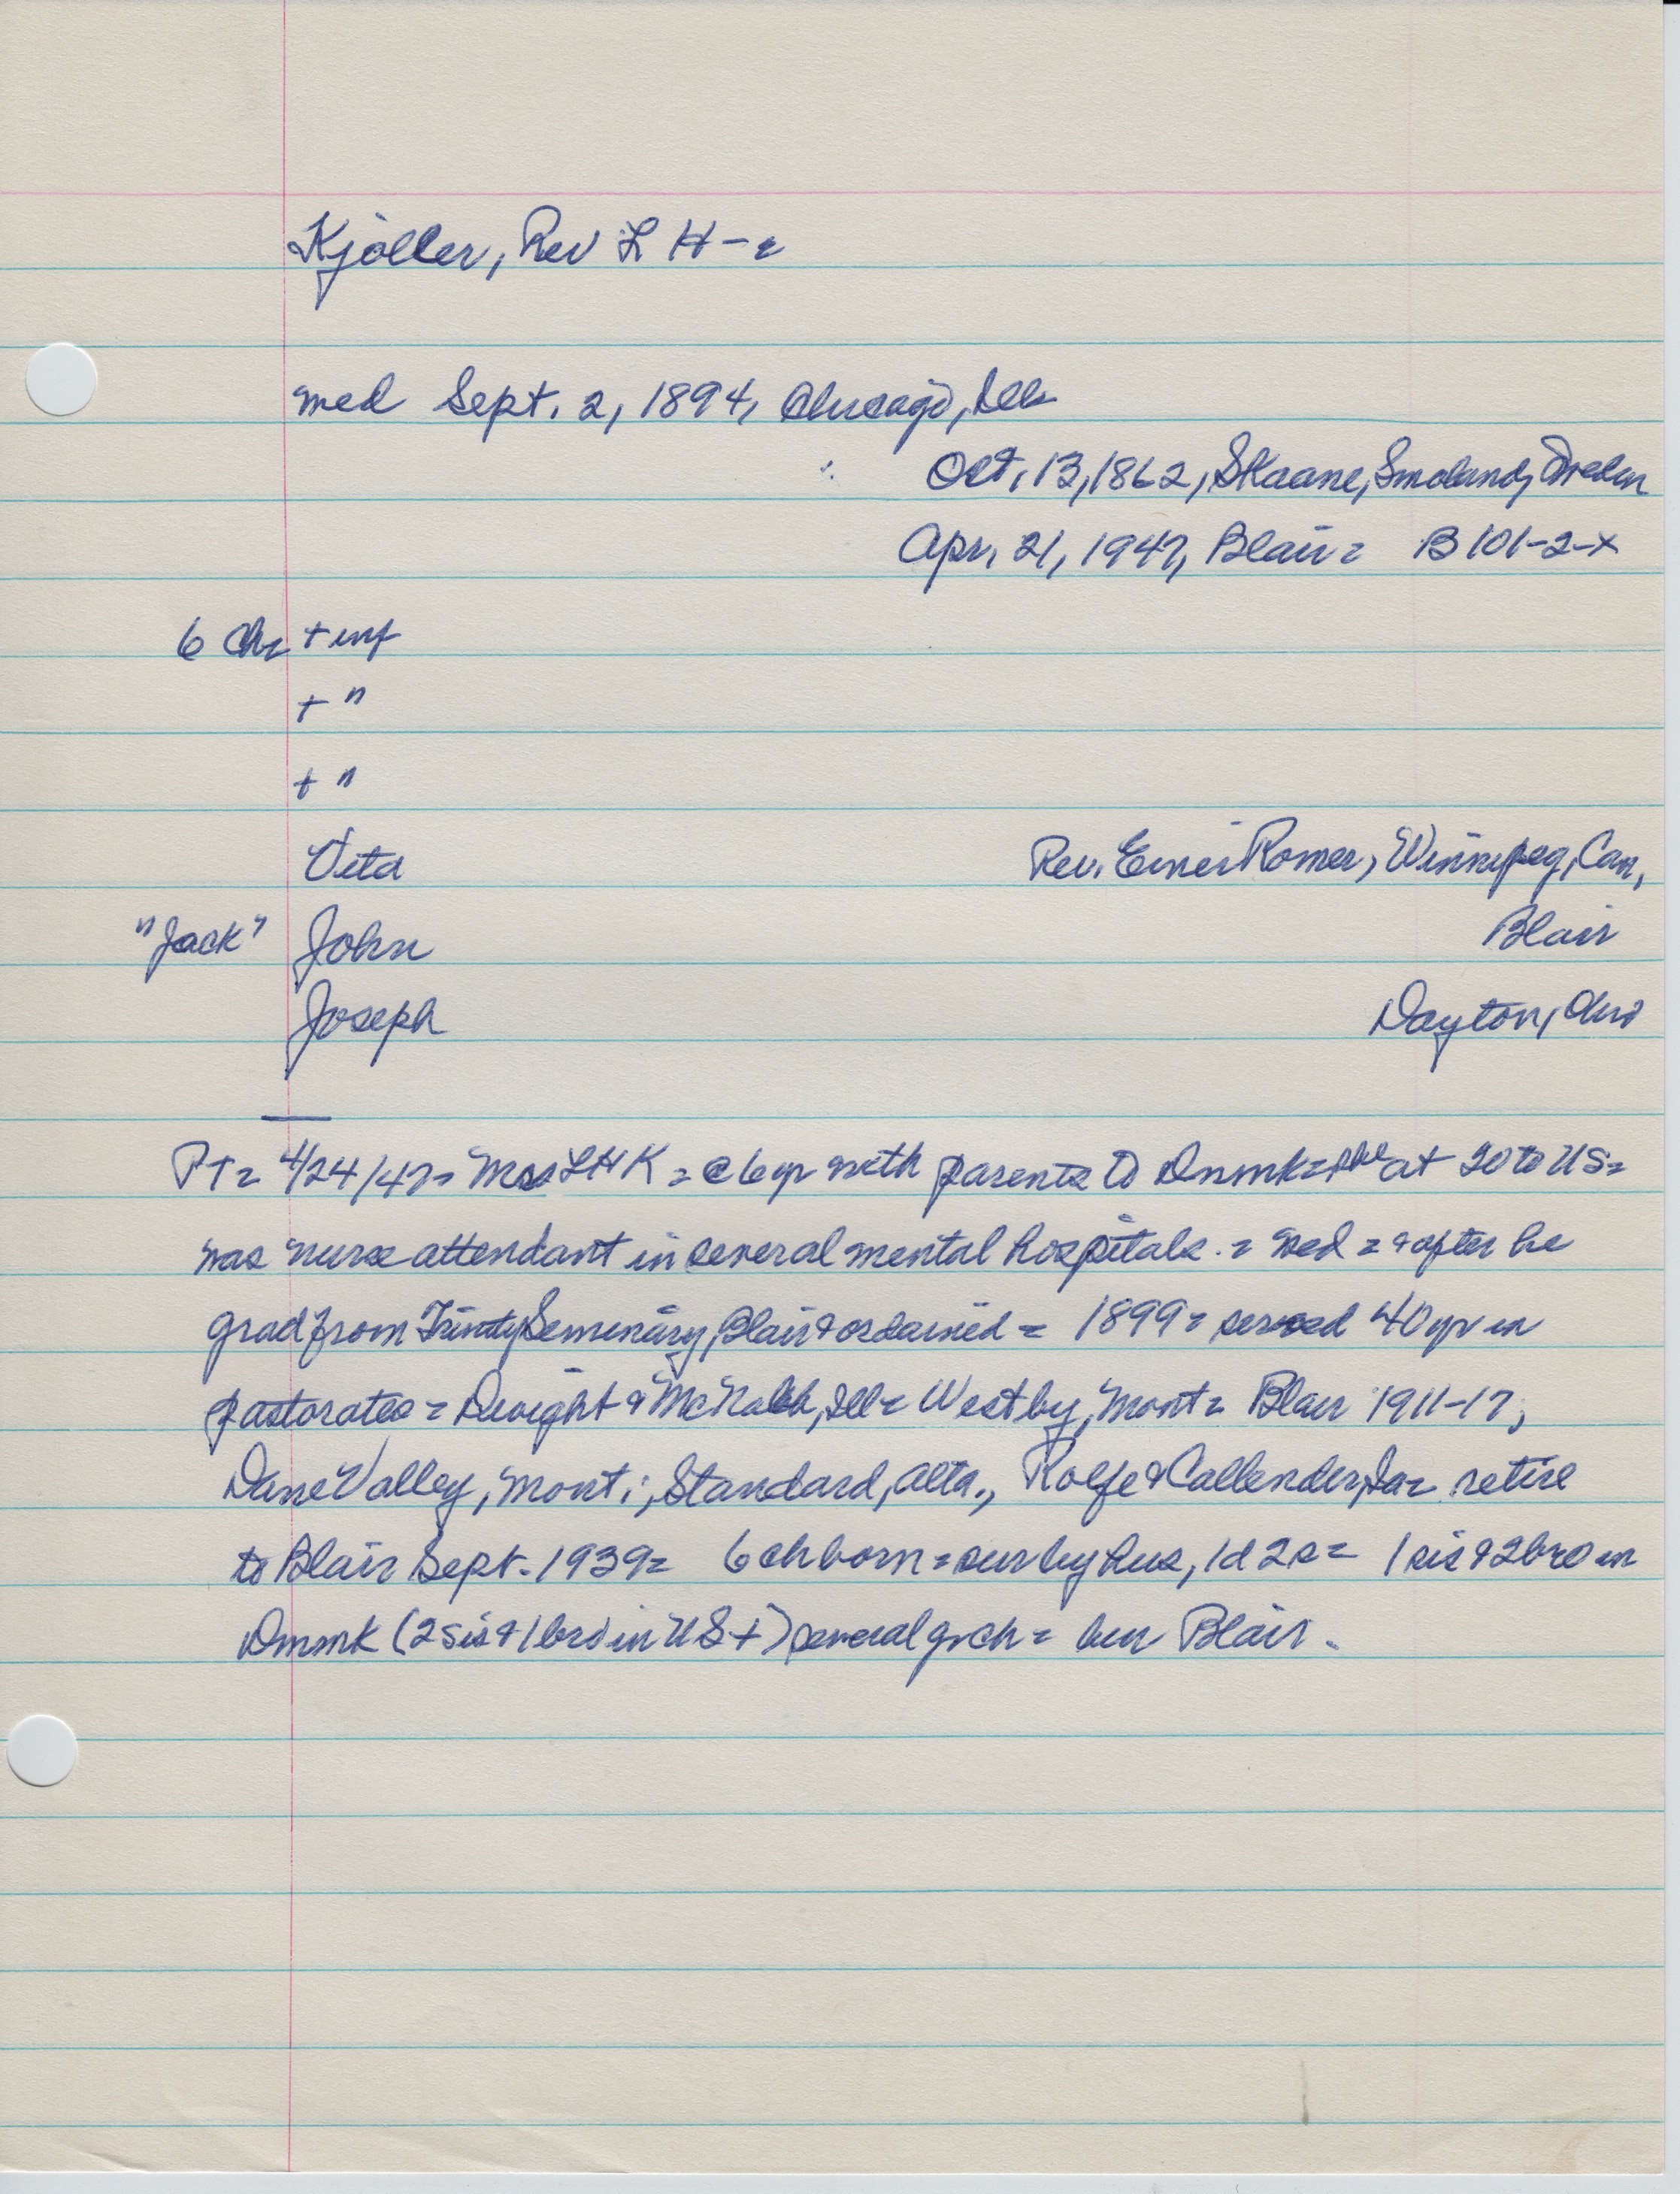 Kjöller, Rev L H -=
med Sept. 2, 1894, Chicago, Ills
Oct. 13, 1862, Skaane, Smoland, Sweden
Apr. 21, 1947, Blair = B 101-2-x
6 Ch = + inf
+ "
+ "
Vita Rev. Einer Romer, Winnipeg, Can,
"Jack" John Blair
Joseph Dayton, Ohio
PT = 4/24/47 = Mrs LHK = @ 6 yr with parents to Dnmk = at 20 to US =
was nurse attendant in several mental hospitals. = wed = & after he
grad from Trinity Seminary, Blair & ordained = 1899 = served 40 yr in
pastorates = Dwight & McNabb, Ill = Westby, Mont = Blair 1911-17;
Dane Valley, Mont; Standard, Alta., Rolfe & Callender, Ia = retire
to Blair Sept. 1939 = 6 ch born = sur by hus, 1d 2s = 1 sis & 2 bro in
Dnmk (2 sis & 1 bro in US +) several grch = bur Blair.